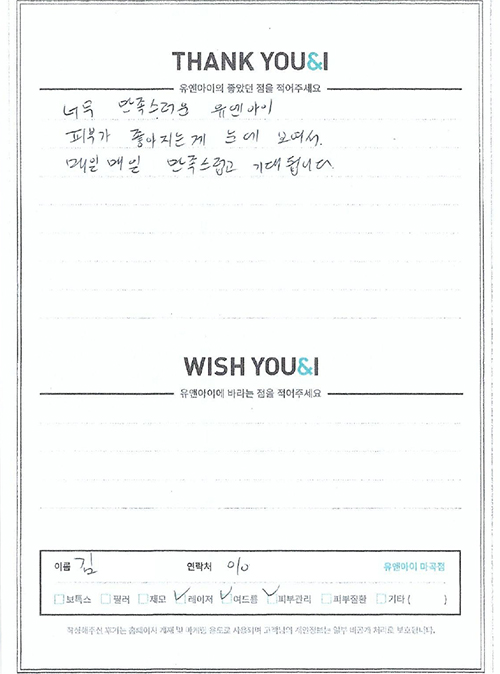 THANK YOU&I
유앤아이의 좋았던 점을 적어주세요
너무 만족스러운 유앤아이
피부가 좋아지는게 눈에 보여서.
매일매일 만족스럽고 기대됩니다.
WISH YOU&I
유앤아이에 바라는 점을 적어주세요
이름 김 연락처 010 유앤아이 마곡점
보톡스 필러 제모 레이저 여드름 피부관리 피부질환 기타 ( )
작성해주신 후기는 홈페이지 게재 및 마케팅 용도로 사용되며 고객님의 개인정보는 일부 비공개 처리로 보호됩니다.